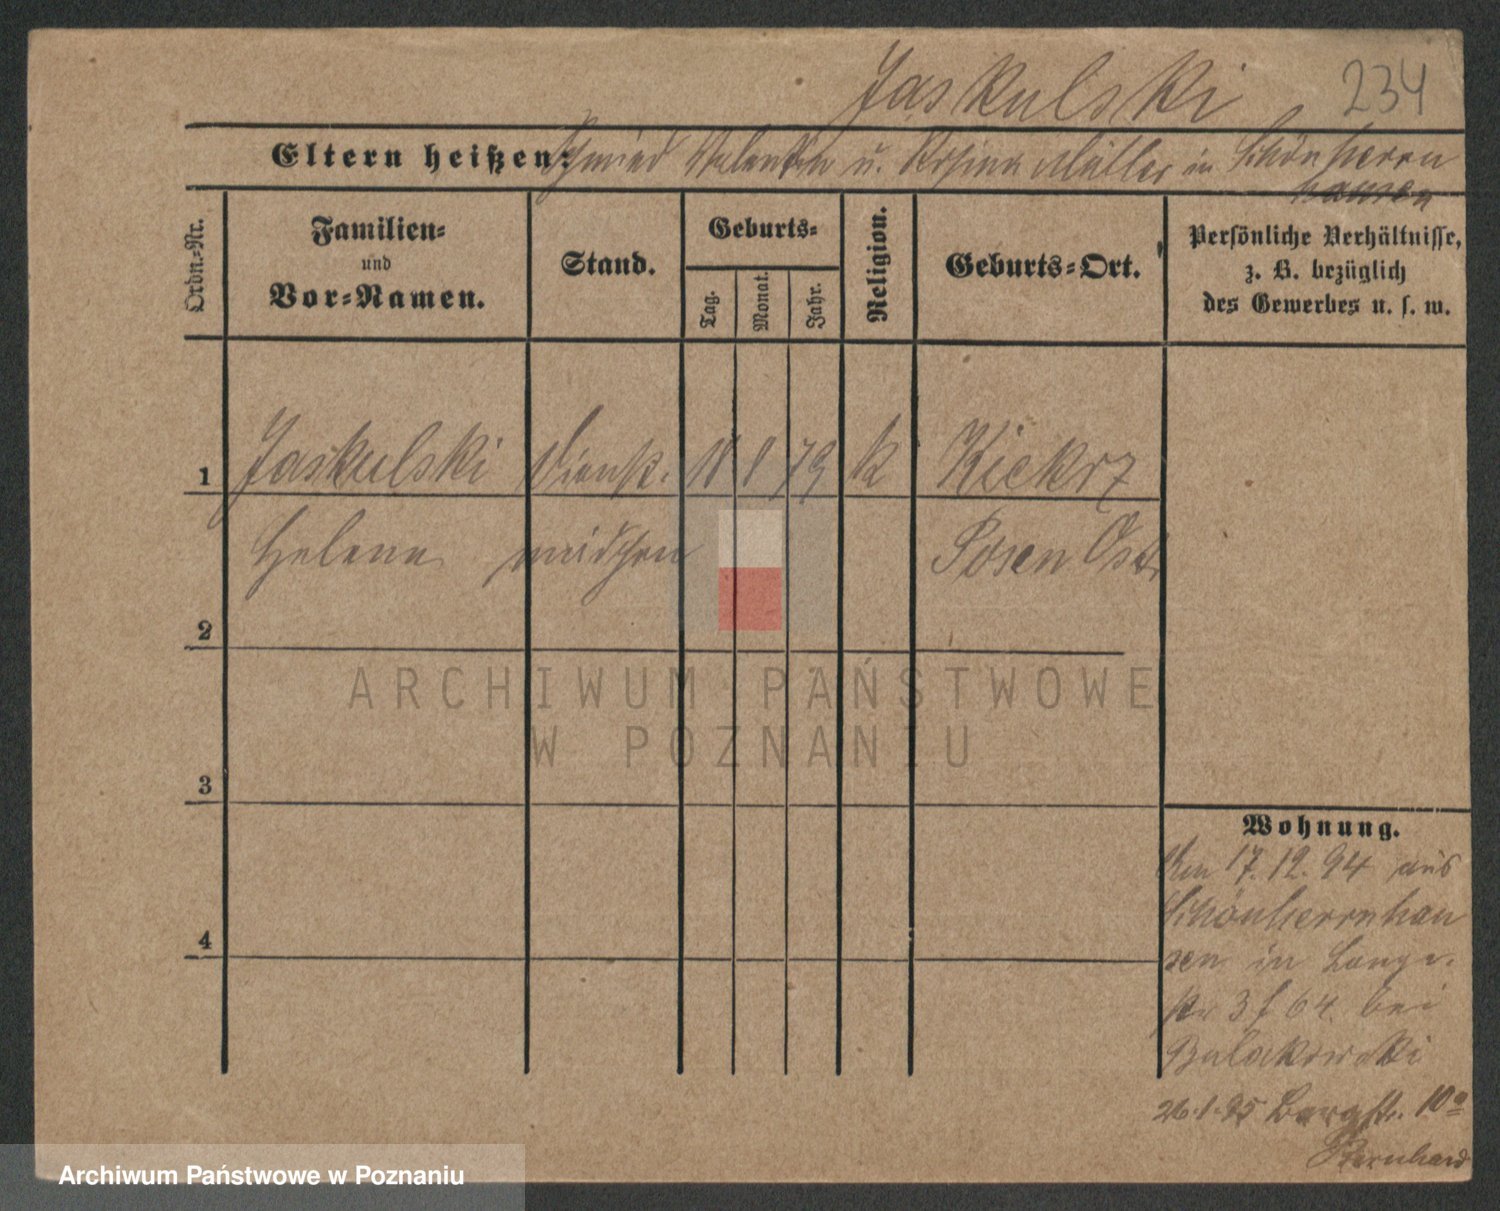 Jaskulski 234
Eltern heißen: Schmied Valentin u. Rosina Müller in Schönherrn
hausen
Ordn.-Nr.
Familien-
und
Vor-Namen.
Stand.
Geburts-
Tag.
Monat.
Jahr.
Religion.
Geburts-Ort.
Persönliche Verhältnisse,
z. B. bezüglich
des Gewerbes u. s. w.
1 Jaskulski Dienst. 18 1 79 k Kiekrz
Helena mädchen Posen Ost.
2
3
4
Wohnung.
Am 17. 12. 94 aus
Schönherrnhau
sen in Lange
str 3 64 bei
Bulakowski
26.1.95 Bergstr. 10a
Bernhard
ARCHIWUM PAŃSTWOWE
W POZNANIU
Archiwum Państwowe w Poznaniu